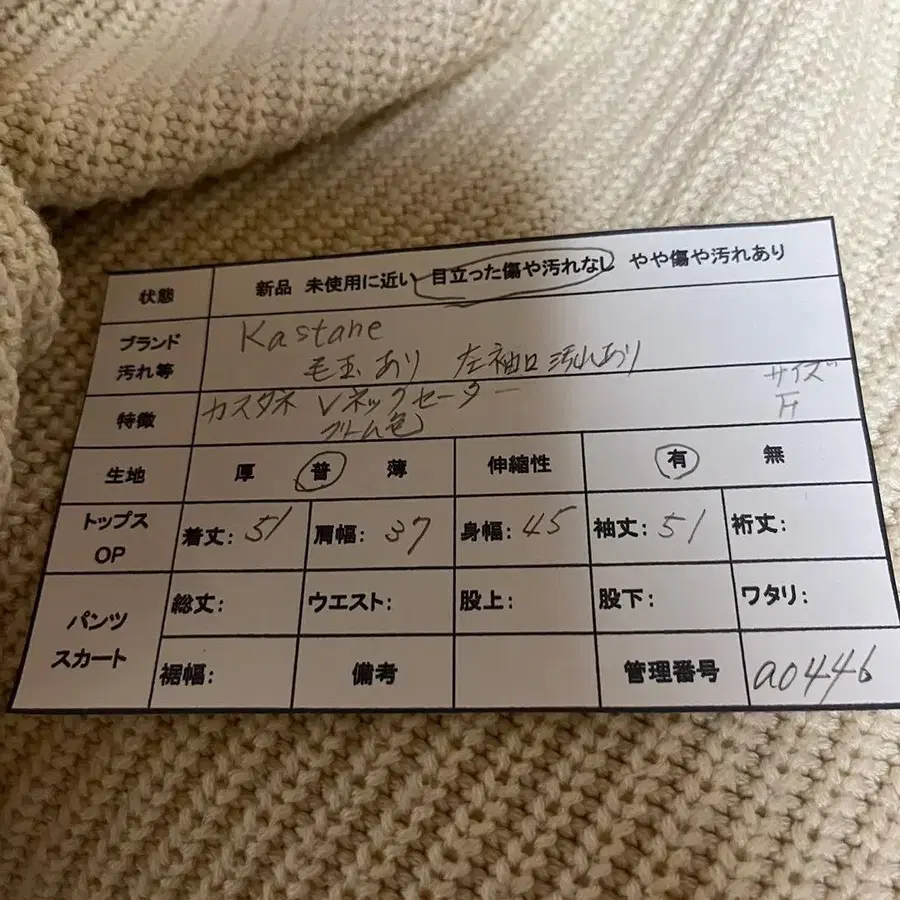 状態 新品 未使用に近い 目立った傷や汚れなし やや傷や汚れあり
ブランド Kastane
汚れ等 毛玉あり 左袖口汚れあり
特徴 カスタネ Vネックセーター サイズ
クリーム色 F
生地 厚 普 薄 伸縮性 有 無
トップス OP 着丈: 51 肩幅: 37 身幅: 45 袖丈: 51 裄丈:
パンツ スカート 総丈: ウエスト: 股上: 股下: ワタリ:
裾幅: 備考 管理番号 a0446